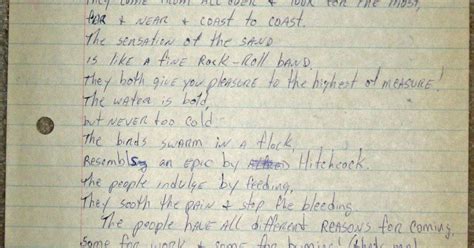 They come from all over & look for the most,
FAR & NEAR & COAST to COAST.
The SENSATION of the SAND
is like A fine Rock-Roll BAND.
They both give you pleasure to the highest of MEASURE!
The WATER is bold,
but NEVER too Cold
The birds SWARM in A flock,
Resembling an Epic by Hitchcock.
The people indulge by feeding,
They sooth the pAiN & stop the bleeding
The people HAVE All different REASONS for COMING,
Some for work & some for